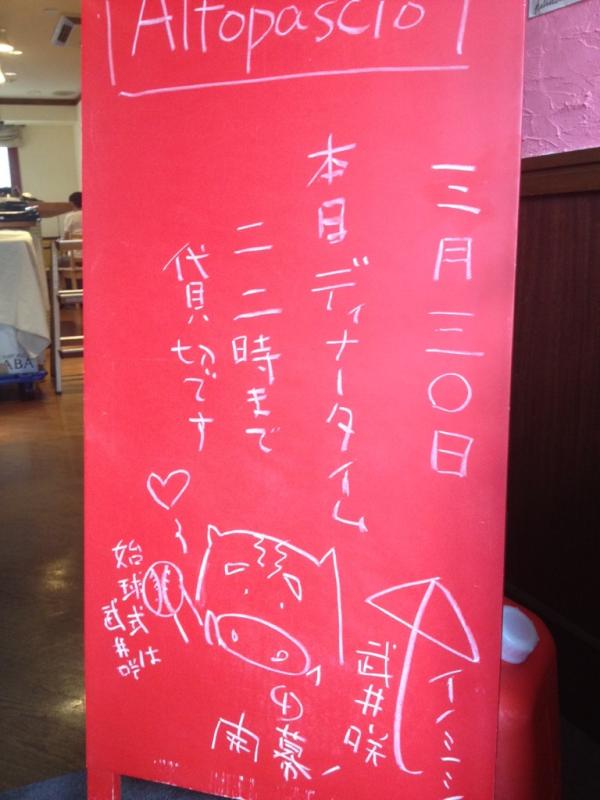 Altopascio
三月三〇日
本日ディナータイム
二二時まで
貸切です
イノシシ
武井咲
の
開幕!
始球式は
武井咲
ABA